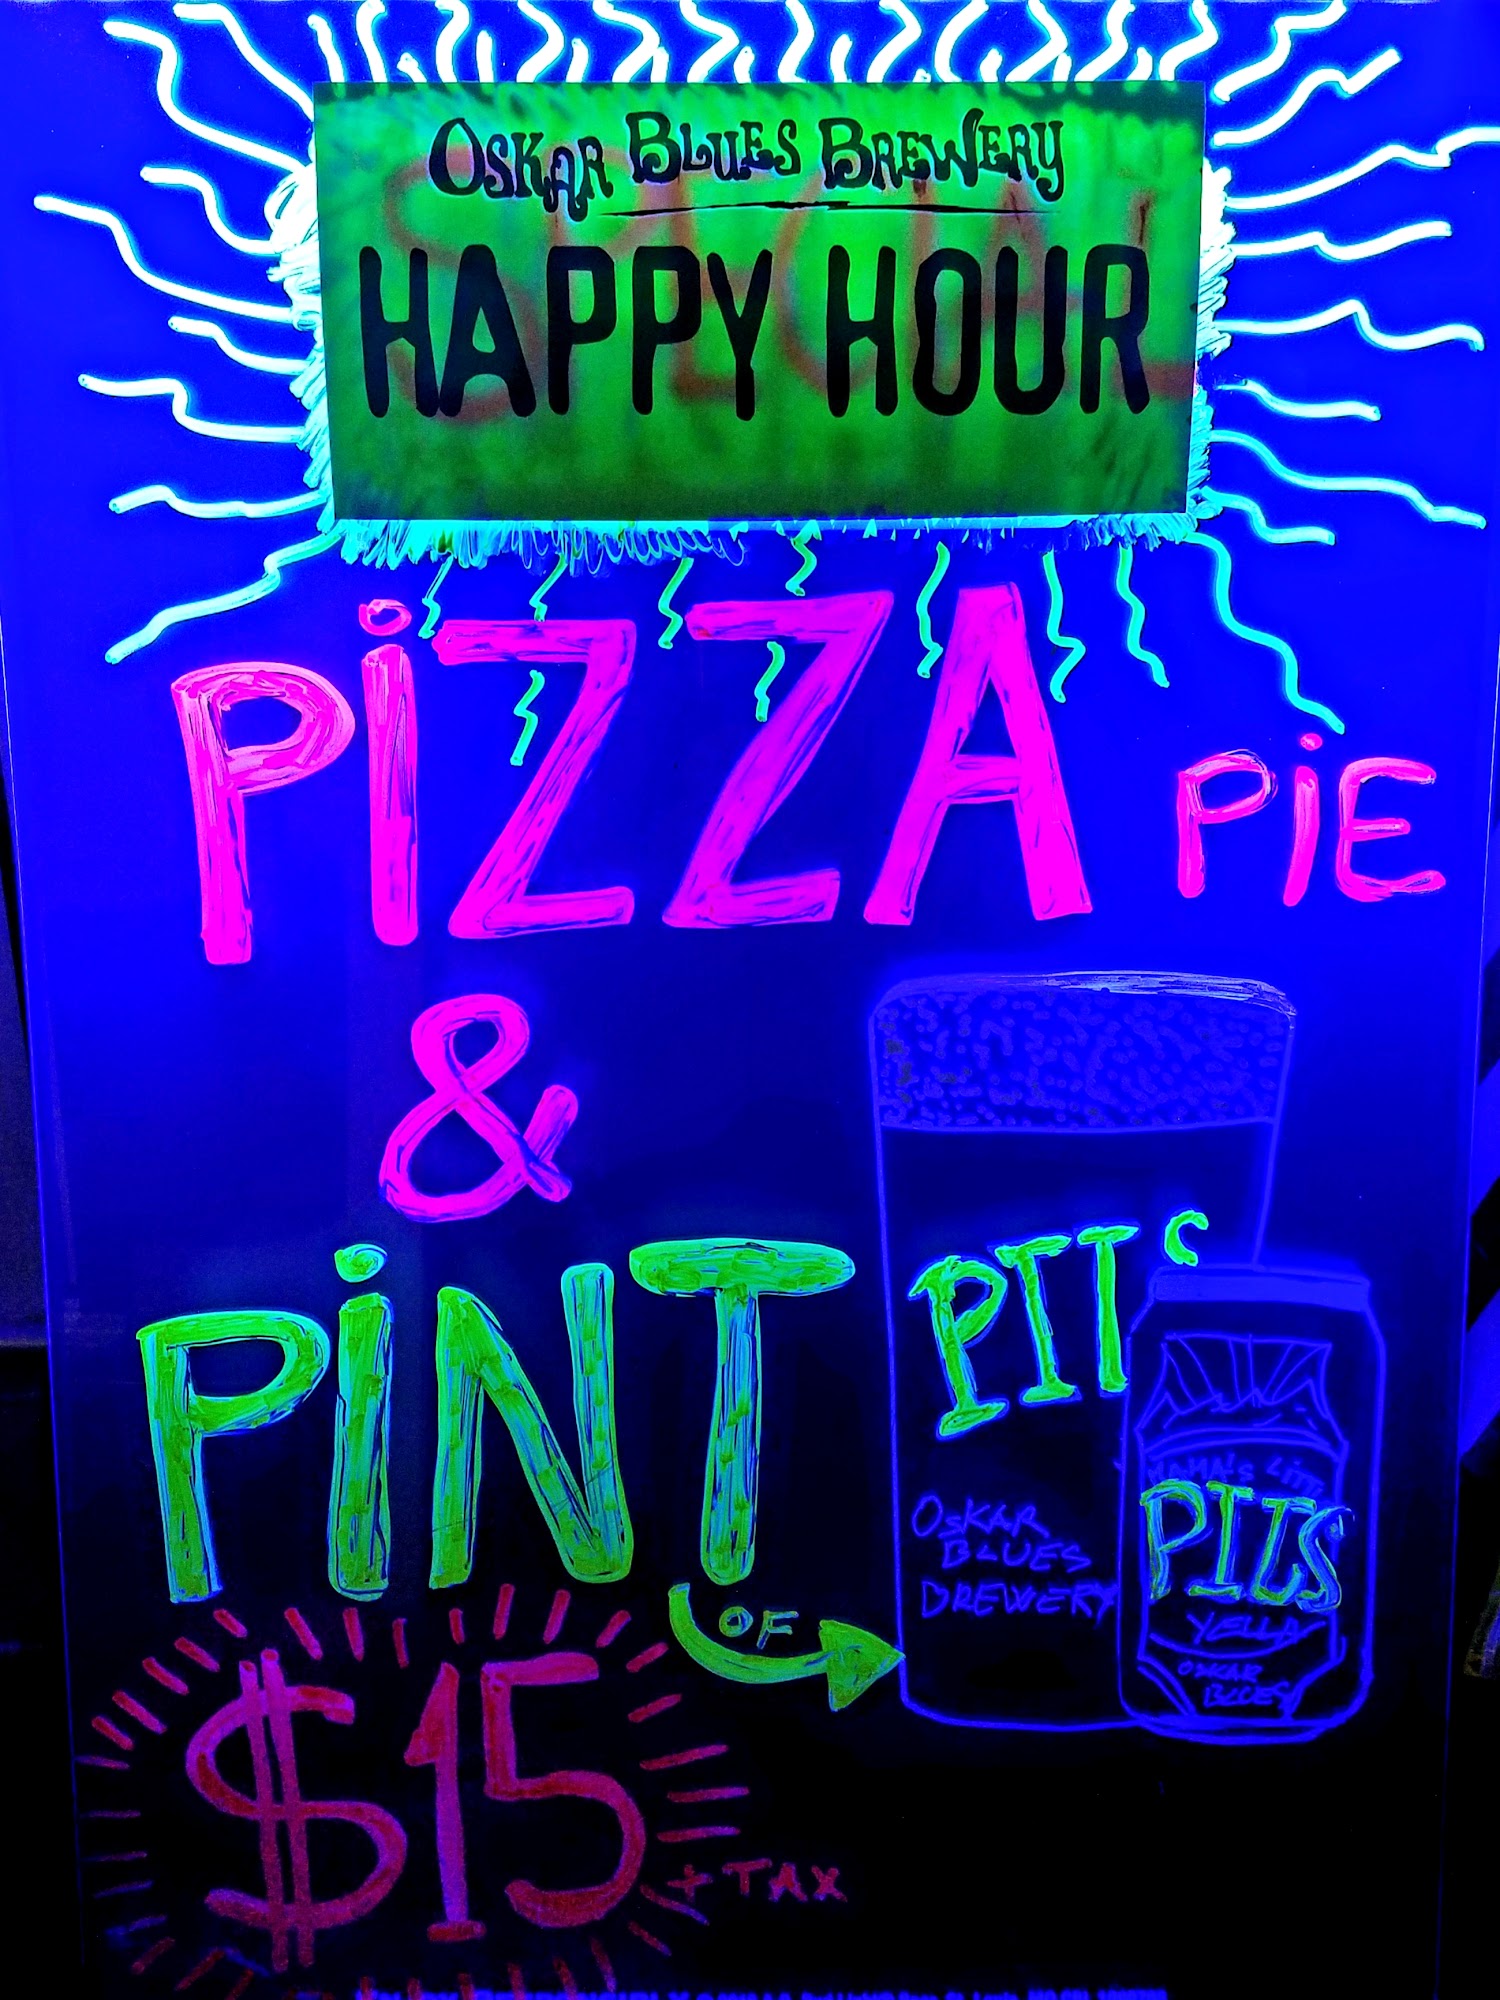 OSKAR BLUES BREWERY
HAPPY HOUR
PiZZA PiE
&
PiNT
OF
PITS
OSKAR
BLUES
BREWERY
MAMA'S LITTL
PILS
YELLA
OSKAR
BLUES
$15
+ TAX